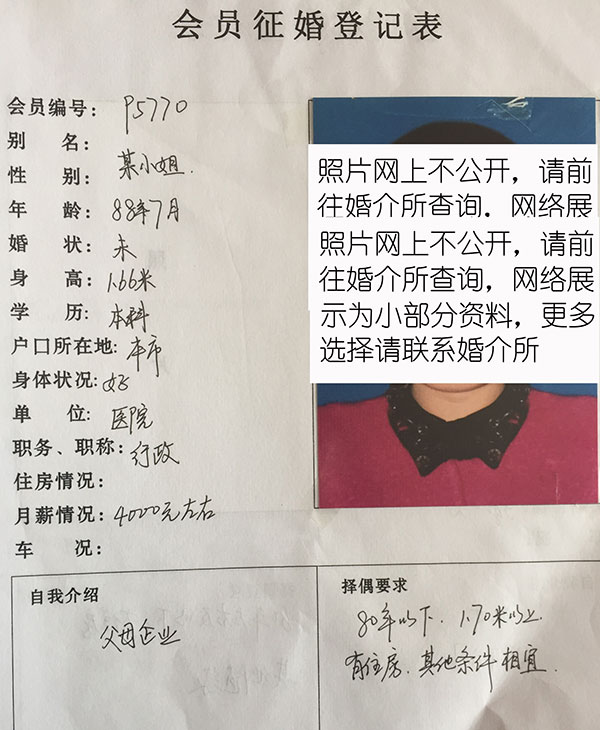 会员征婚登记表
会员编号: P5770
别 名:
性 别: 某小姐.
年 龄: 88年7月
婚 状: 未
身 高: 1.66米
学 历: 本科
户口所在地: 本市
身体状况: 好
单 位: 医院
职务、职称: 行政
住房情况:
月薪情况: 4000元左右
车 况:
照片网上不公开，请前
往婚介所查询．网络展
照片网上不公开，请前
往婚介所查询，网络展
示为小部分资料，更多
选择请联系婚介所
自我介绍
父母企业
择偶要求
80年以下. 1.70米以上.
有住房. 其他条件相宜.